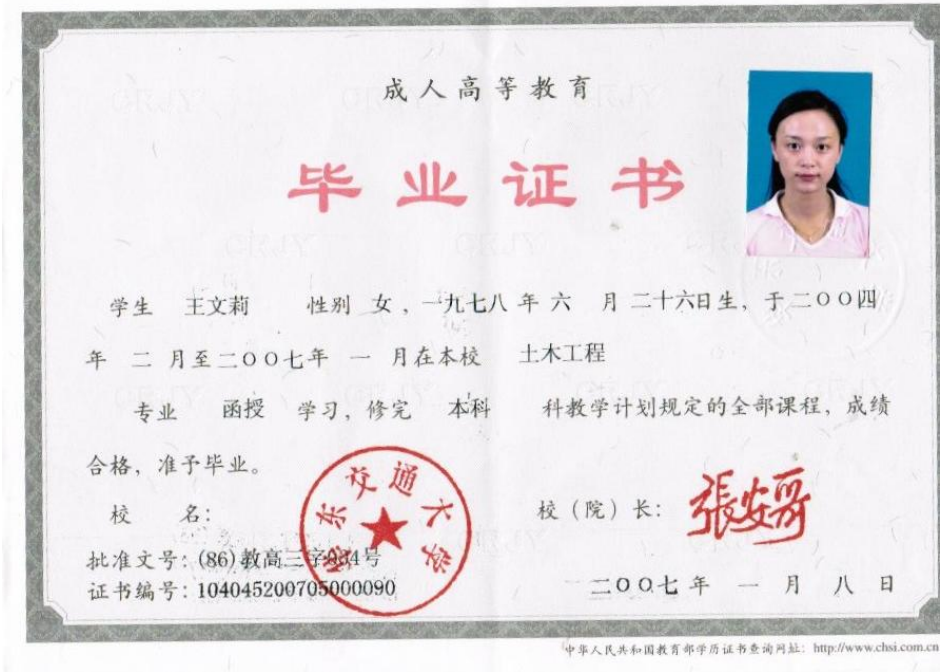 成人高等教育
毕业证书
学生 王文莉 性别 女，一九七八年 六 月 二十六日生，于二〇〇四
年 二 月至二〇〇七年 一 月在本校 土木工程
专业 函授 学习，修完 本科 科教学计划规定的全部课程，成绩
合格，准予毕业。
华东交通大学
校 名：
校（院）长：張安哥
批准文号：(86)教高三字034号
证书编号：104045200705000090
二〇〇七年 一 月 八 日
中华人民共和国教育部学历证书查询网址：http://www.chsi.com.cn